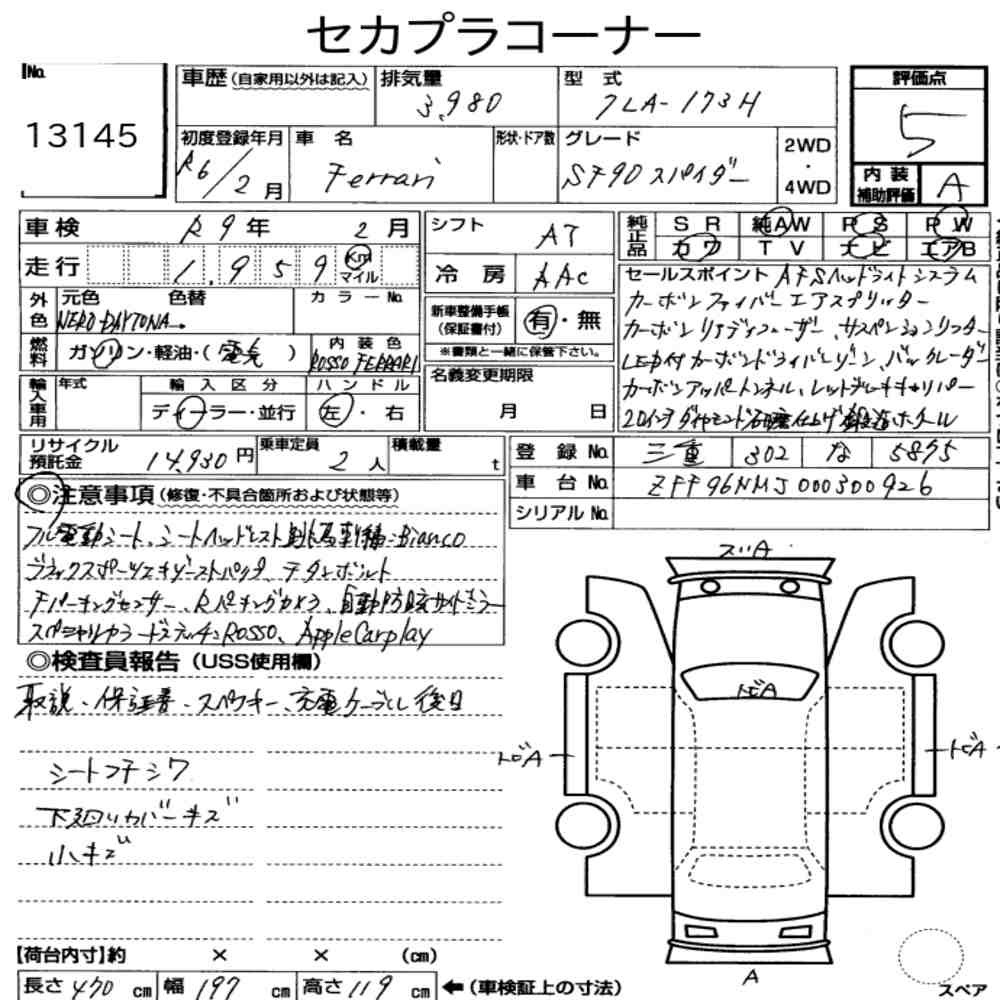 セカプラコーナー
No.
13145
車歴(自家用以外は記入)
排気量
3,980
型 式
7LA-173H
評価点
5
初度登録年月
R6/2月
車 名
Ferrari
形状・ドア数
グレード
SF90 スパイダー
2WD
・
4WD
内 装
補助評価
A
車検 R9年 2月
走行 1,959 Km マイル
外色
元色 色替
カラーNo.
NERO DAYTONA
燃料
ガソリン・軽油・(電気)
内装色
ROSSO FERRARI
輸入車用
年式
輸入区分
ディーラー・並行
ハンドル
左・右
シフト AT
冷 房 AAC
新車整備手帳
(保証書付)
有・無
※書類と一緒に保管下さい。
名義変更期限
月 日
純正品
SR 純AW PS PW
カワ TV ナビ エアB
セールスポイント AFSヘッドライトシステム
カーボンファイバーエアスプリッター
カーボンリアディフューザー、サスペンションリフター
LED付カーボンドライバーゾーン、バックレーダー
カーボンアッパートンネル、レッドブレーキキャリパー
20インチダイヤモンド研磨仕上げ鍛造ホイール
リサイクル
預託金
14,930円
乗車定員
2人
積載量
t
登 録 No. 三重 302 な 5895
車 台 No. ZFF96NMJ000300926
シリアルNo.
◎注意事項(修復・不具合箇所および状態等)
フル電動シート、シートヘッドレスト跳ね馬刺繍:Bianco
ブラックスポーツエキゾーストパイプ、チタンボルト
Fパーキングセンサー、Rパーキングカメラ、自動防眩サイドミラー
スペシャルカラードステッチ:ROSSO、AppleCarplay
◎検査員報告(USS使用欄)
取説、保証書、スペアキー、充電ケーブル後日
シートフチシワ
下廻りカバーキズ
小キズ
スリA
トビA
トビA
トビA
A
スペア
【荷台内寸】約 × × (cm)
長さ 470 cm 幅 197 cm 高さ 119 cm ←(車検証上の寸法)